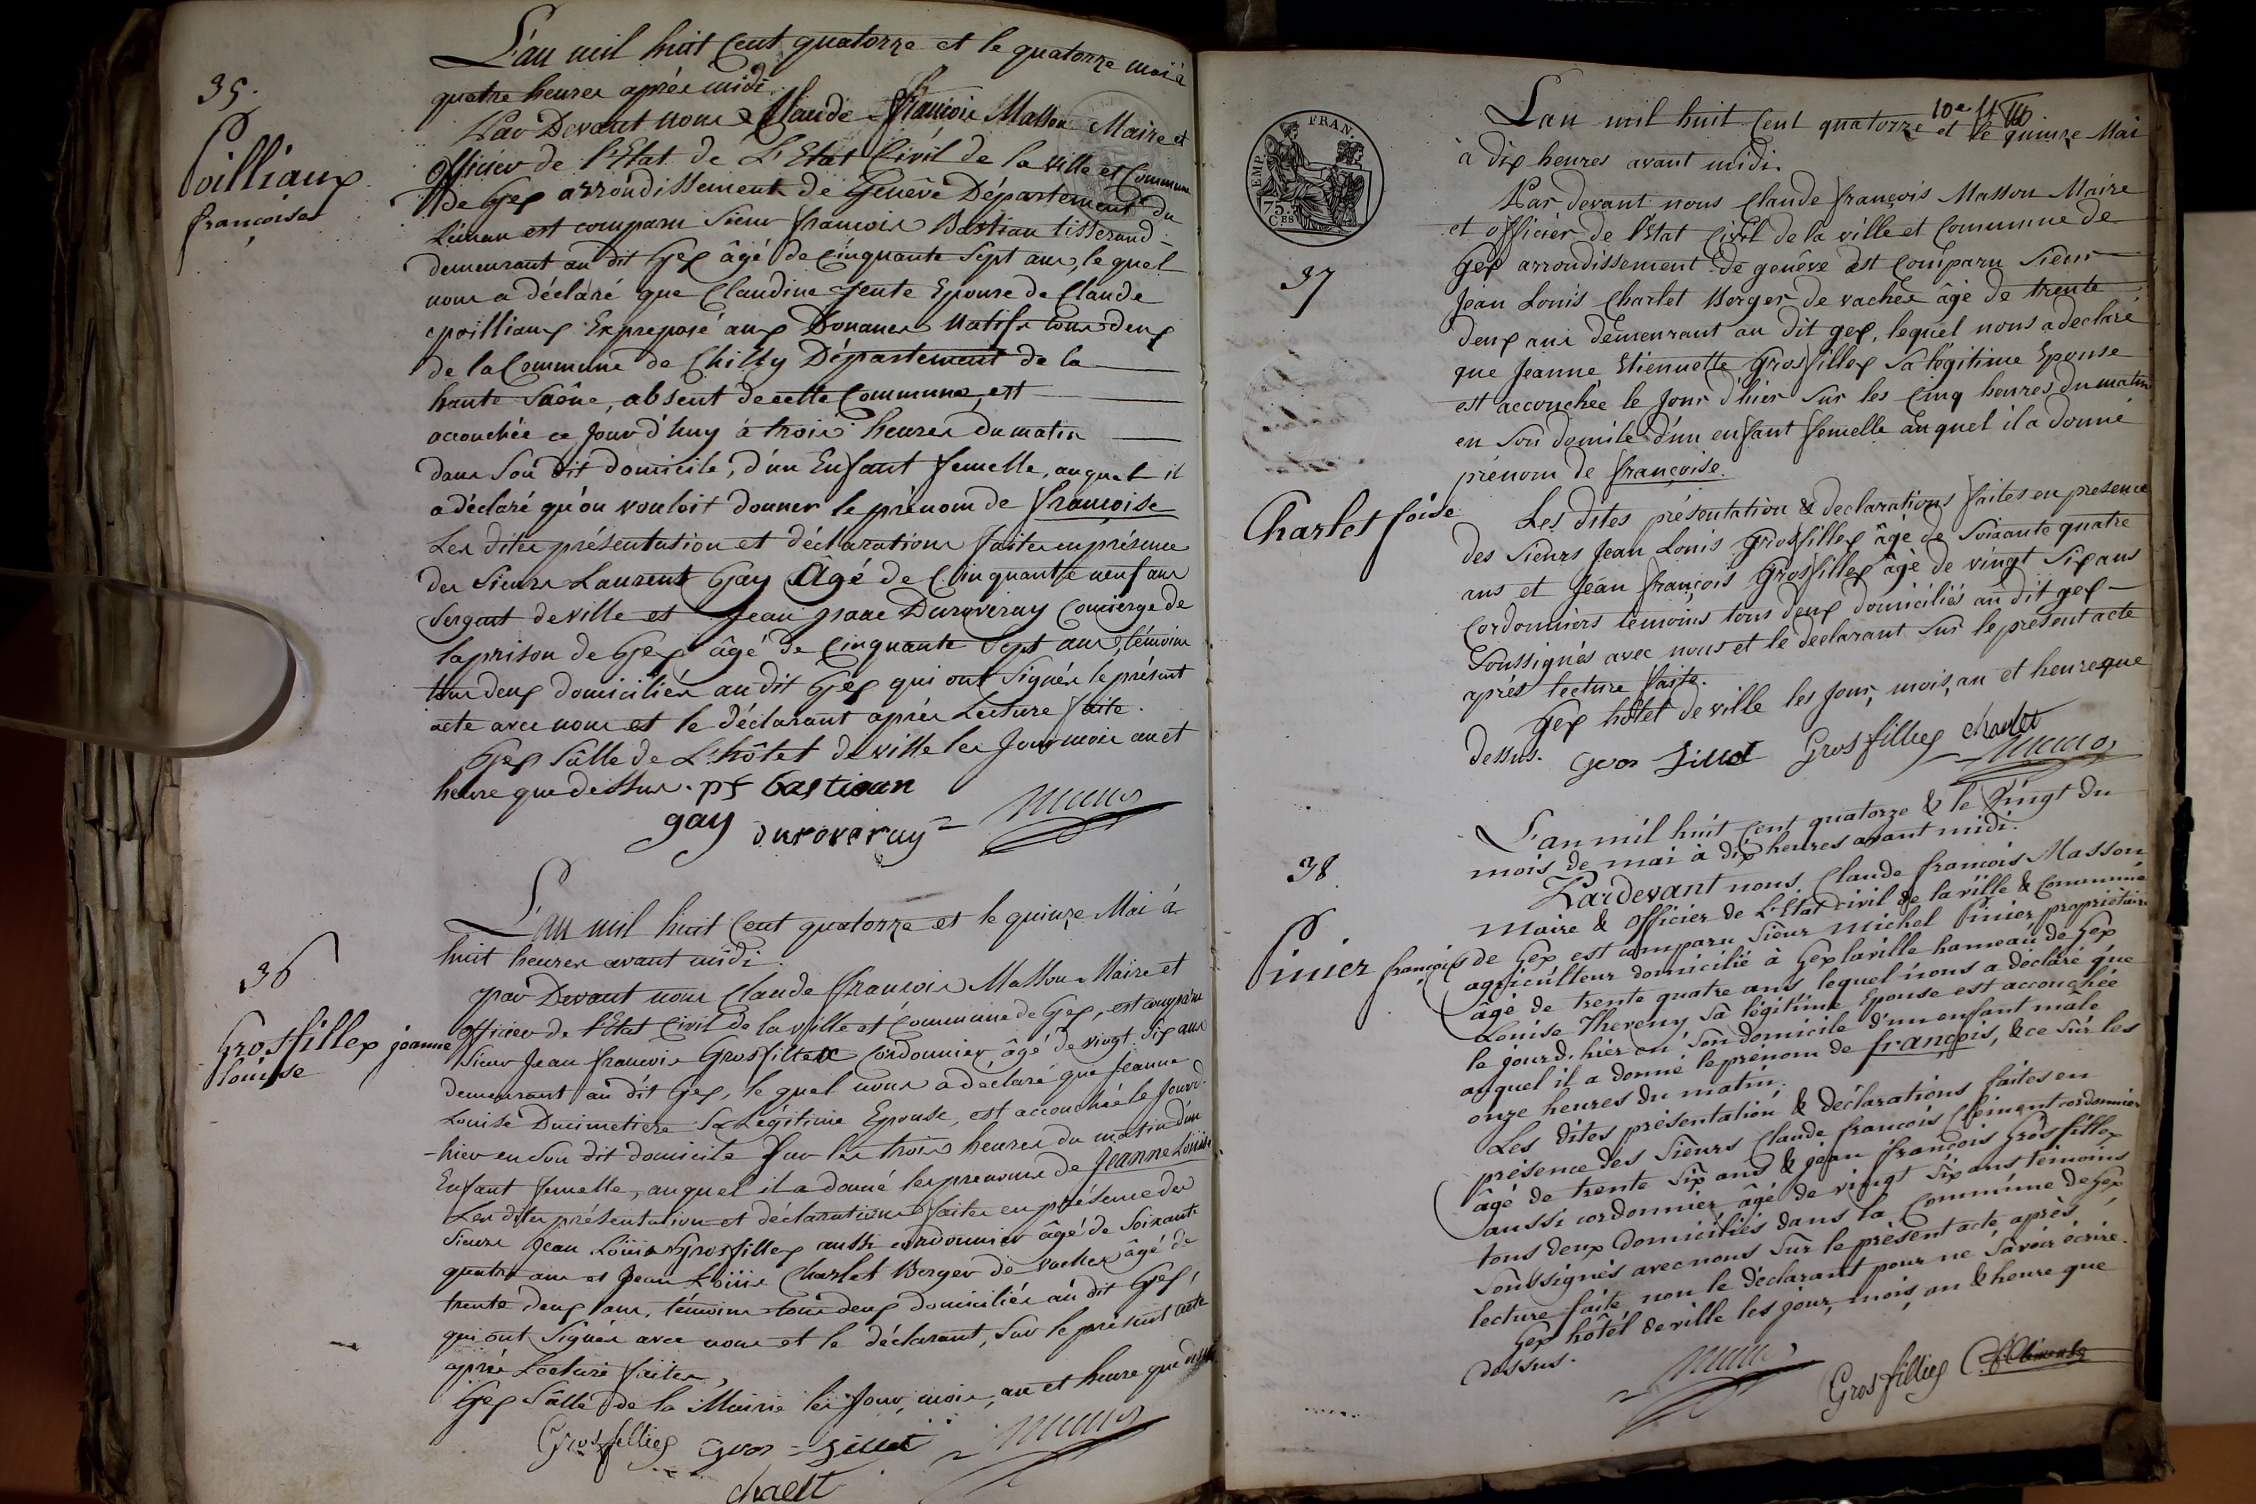 35.
Poilliaux
françoise
L'an mil huit Cent quatorze et le quatorze mai à
quatre heures après midi.
Par Devant nous Claude François Masson Maire et
officier de l'Etat de L'Etat Civil de la ville et Commune
de Gex arrondissement de Genêve Département du
Léman est comparu Sieur francois Bastian tisserand
demeurant au dit Gex âgé de Cinquante Sept ans, le quel
nous a déclaré que Claudine Jente Epouse de Claude
poilliaux Expreposé aux Douanes Natifs tous deux
de la Commune de Chilly Département de la
haute Saône, absent de cette Commune, est
accouchée ce Jour d'huy à trois heures du matin
dans Son dit domicile, d'un Enfant femelle, auquel il
a déclaré qu'on vouloit donner le prénom de françoise
Les dites présentation et déclarations faites en présence
des Sieurs Laurent Gay Agé de Cinquante neuf ans
Sergent de ville et Jean Isaac Duroveray Concierge de
la prison de Gex âgé de Cinquante Sept ans, témoins
tous deux domiciliés au dit Gex qui ont Signés le présent
acte avec nous et le déclarant après Lecture faite.
Gex Sâlle de L'hôtel de ville les Jour mois an et
heure que dessus. pf bastiaan
gay duroveray
36
Grosfillex jeanne
louise
L'an mil huit Cent quatorze et le quinze Mai à
huit heures avant midi.
par Devant nous Claude francois Masson Maire et
officier de l'Etat Civil de la ville et Commune de Gex, est comparu
Sieur Jean francois Grosfillex Cordonnier, âgé de vingt Six ans
demeurant au dit Gex, le quel nous a déclaré que Jeanne
Louise Ducimetiere Sa Légitime Epouse, est accouchée le Jour d'
hier en Son dit domicile Sur les trois heures du matin d'un
Enfant femelle, auquel il a donné les prenoms de Jeanne Louise
Les dites présentation et déclarations faites en présence des
Sieurs Jean Louis Grosfillex aussi cordonnier âgé de Soixante
quatre ans et Jean Louis Charlet Berger de vaches âgé de
trente deux ans, témoins tous deux domiciliés au dit Gex,
qui ont Signés avec nous et le déclarant, Sur le présent acte
après Lecture faite,
Gex Sâlle de la Mairie les Jour, mois, an et heure que dessus
Grosfilliex gros = filliet
charlt
10e 4
FRAN.
EMP.
75.
C.ES
37
Charlet foise
L'an mil huit Cent quatorze et le quinze Mai
à dix heures avant midi.
Par devant nous Claude françois Masson Maire
et officier de l'Etat Civil de la ville et Commune de
Gex arrondissement de genêve est Comparu Sieur
Jean Louis Charlet Berger de vaches âgé de trente
deux ans demeurant au dit gex, lequel nous a declaré
que Jeanne Etiennette Grosfillex Sa légitime Epouse
est accouchée le Jour d'hier Sur les Cinq heures du matin
en Son domile d'un enfant femelle auquel il a donné
prénom de françoise.
Les dites présentation & declarations faites en presence
des Sieurs Jean Louis Grosfillex âgé de Soixante quatre
ans et Jean françois Grosfillex âgé de vingt Six ans
Cordonniers témoins tous deux domiciliés au dit gex
Soussignés avec nous et le declarant Sur le présent acte
après lecture faite.
Gex hôtel de ville les Jour, mois, an et heure que
dessus. gros filliet Grosfilliex charlet
38.
Pinier françois
L'an mil huit Cent quatorze & le Vingt du
mois de mai à dix heures avant midi.
Pardevant nous Claude francois Masson
maire & officier de L'Etat civil de la ville & Commune
de Gex est comparu Sieur Michel Pinier propriétaire
agriculteur domicilié à Gex la ville hameau de Gex
âgé de trente quatre ans lequel nous a déclaré que
Louise Thereny Sa légitime Epouse est accouchée
le jourd'hier en Son domicile d'un enfant male
auquel il a donné le prénom de françois, & ce Sur les
onze heures du matin.
Les dites présentation & déclarations faites en
présence des Sieurs Claude francois Clément cordonnier
âgé de trente Six ans & jean françois Grosfillex
aussi cordonnier âgé de vingt Six ans témoins
tous deux domiciliés dans la Commune de Gex
Soussignés avec nous Sur le présent acte après
lecture faite, non le déclarant pour ne Savoir écrire.
Gex hôtel de ville les jour, mois, an & heure que
dessus.
Grosfilliex C. f. Clement